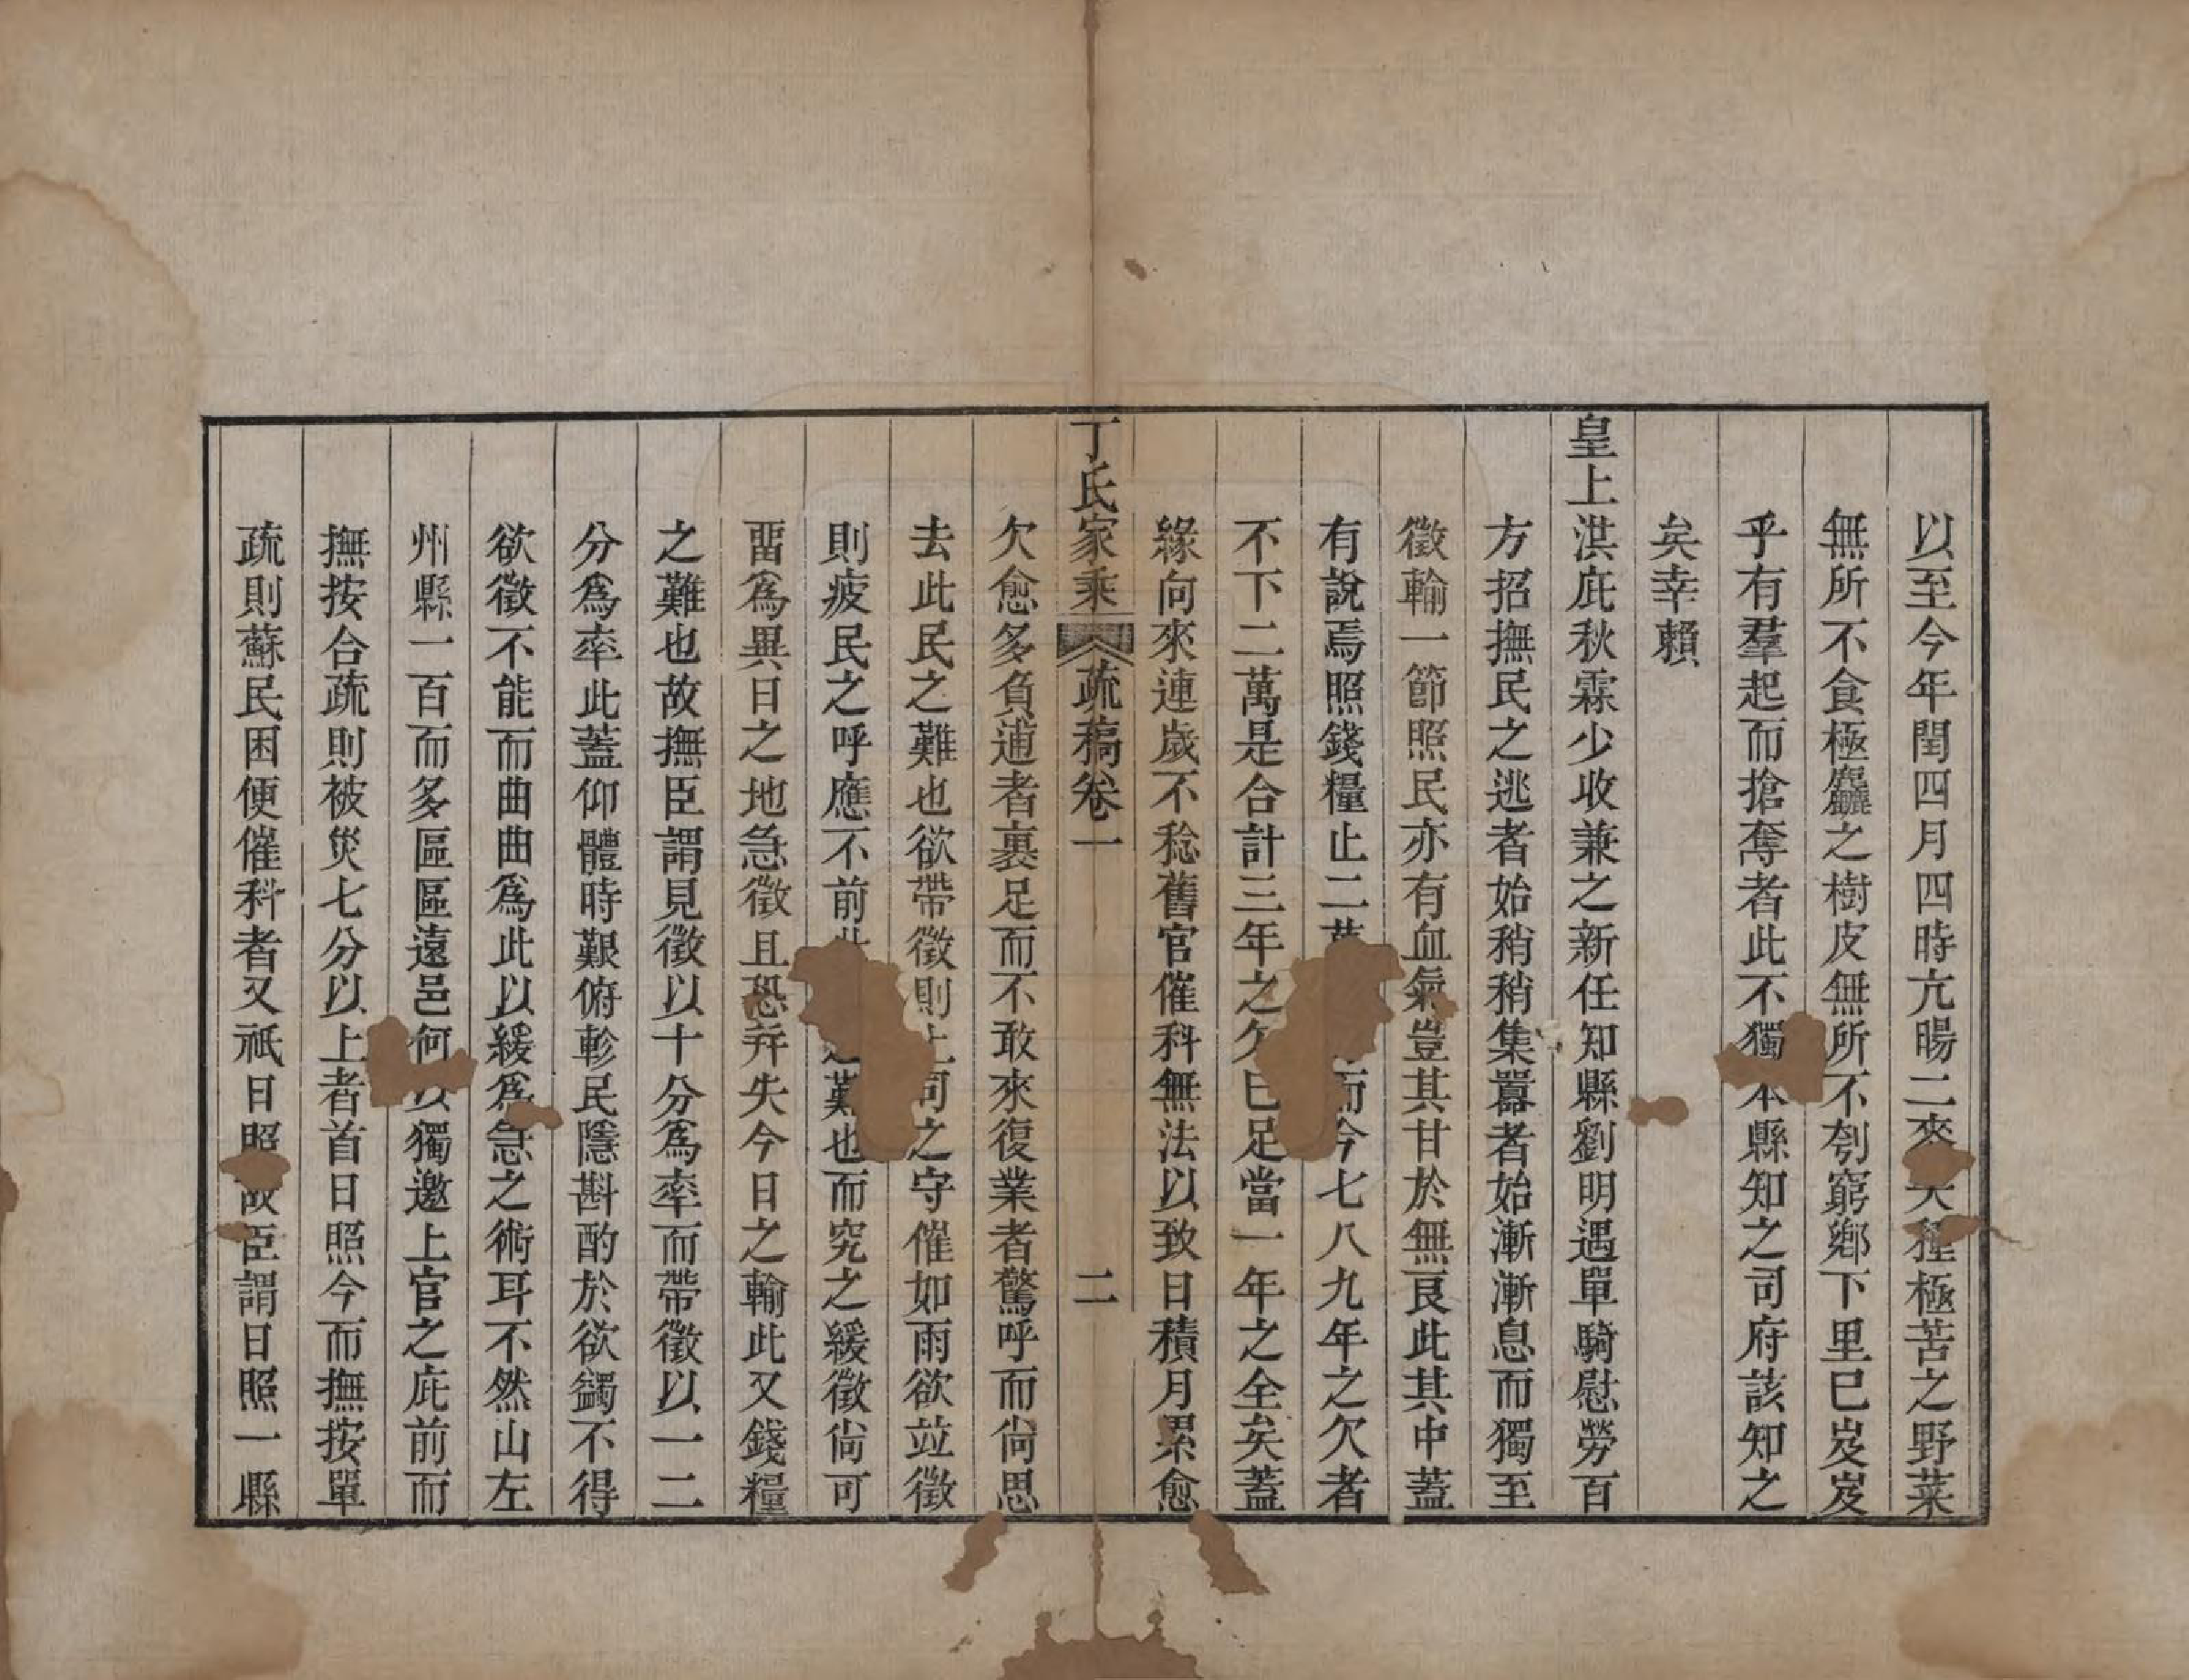 以至今年閏四月四時亢暘二麥種極苦之野菜
無所不食極麤之樹皮無所不刳窮鄉下里巳岌岌
乎有羣起而搶奪者此不獨本縣知之司府該知之
矣幸賴
皇上淇庇秋霖少收兼之新任知縣劉明遇單騎慰勞百
方招撫民之逃者始稍稍集嚚者始漸漸息而獨至
徵輸一節照民亦有血氣豈其甘於無良此其中蓋
有說焉照錢糧止二萬而今七八九年之欠者
不下二萬是合計三年之欠巳足當一年之全矣蓋
緣向來連歲不稔舊官催科無法以致日積月累愈
丁氏家乘 疏稿卷一 二
欠愈多負逋者裹足而不敢來復業者驚呼而尙思
去此民之難也欲帶徵則上司之守催如雨欲竝徵
則疲民之呼應不前此難也而究之緩徵尙可
畱爲異日之地急徵且恐并失今日之輸此又錢糧
之難也故撫臣謂見徵以十分爲率而帶徵以一二
分爲率此蓋仰體時艱俯軫民隱斟酌於欲蠲不得
欲徵不能而曲曲爲此以緩爲急之術耳不然山左
州縣一百而多區區遠邑何以獨邀上官之庇前而
撫按合疏則被災七分以上者首日照今而撫按單
疏則蘇民困便催科者又祇日照故臣謂日照一縣